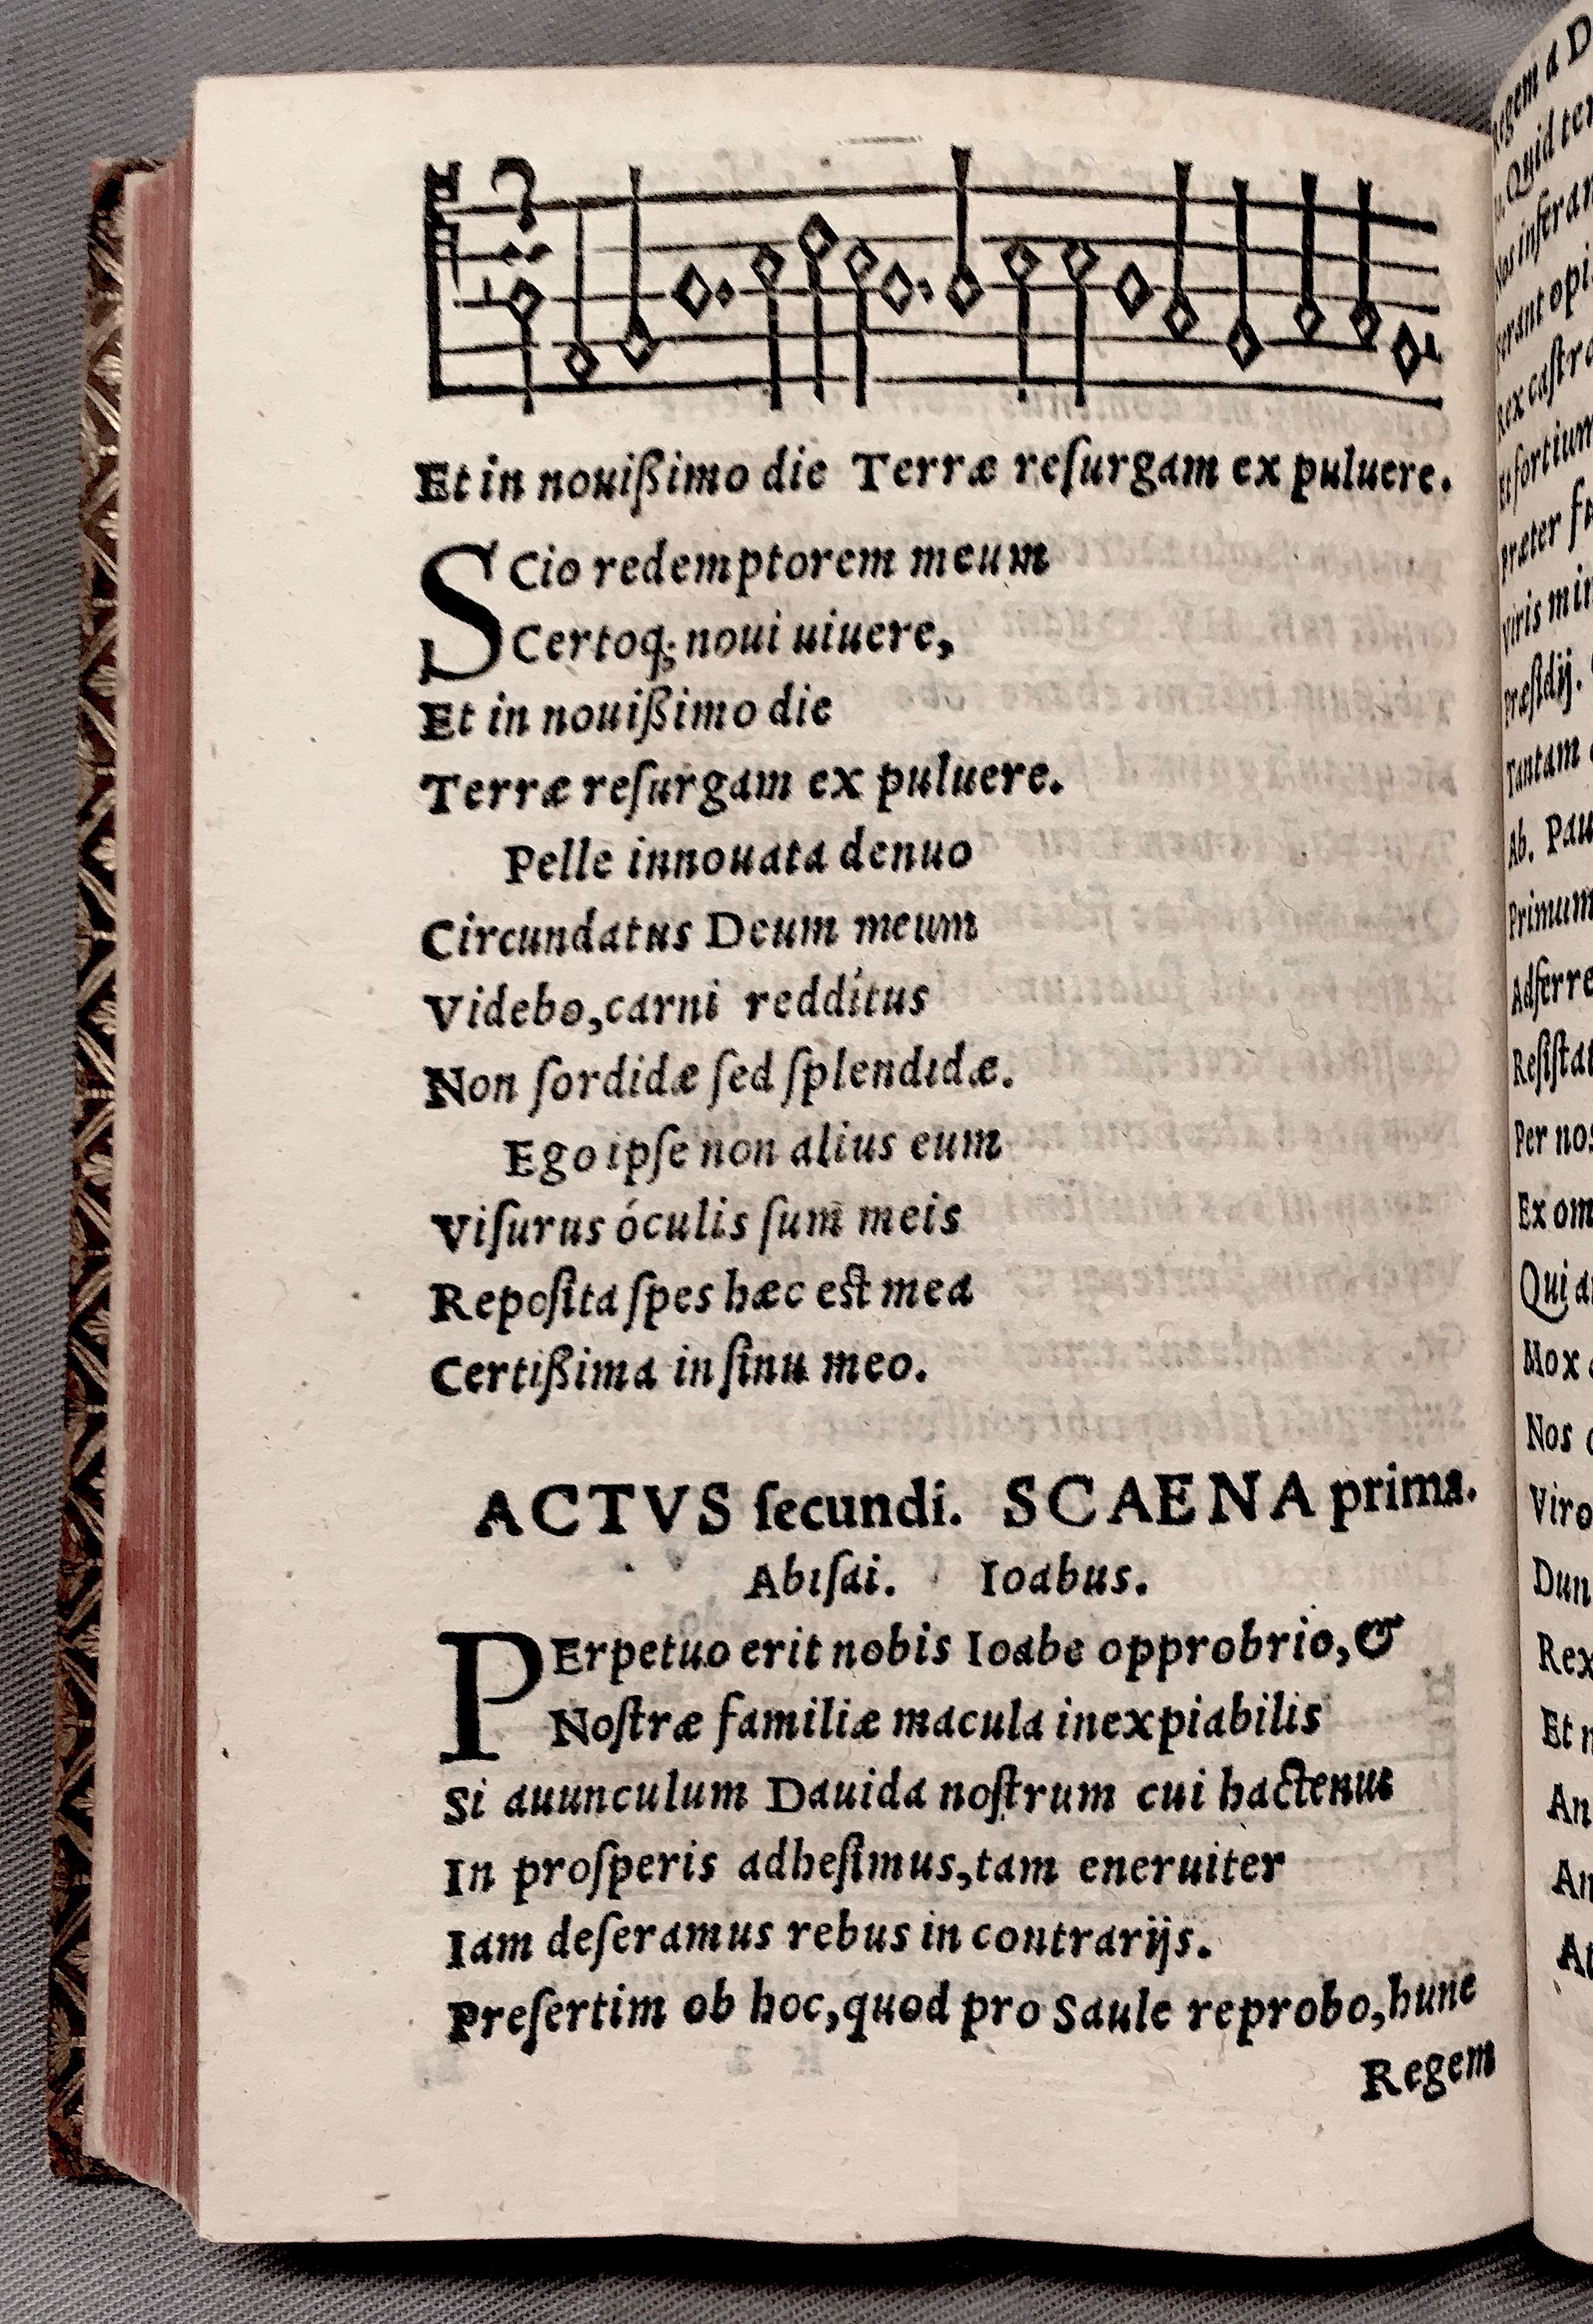 Et in nouißimo die Terræ reſurgam ex puluere.
SCio redemptorem meum
Certoq; noui uiuere,
Et in nouißimo die
Terræ reſurgam ex puluere.
Pelle innouata denuo
Circundatus Deum meum
Videbo, carni redditus
Non ſordidæ ſed ſplendidæ.
Ego ipſe non alius eum
Viſurus óculis ſum meis
Repoſita ſpes hæc est mea
Certißima in ſinu meo.
ACTVS ſecundi. SCAENA prima.
Abiſai. Ioabus.
PErpetuo erit nobis Ioabe opprobrio, &
Noſtræ familiæ macula inexpiabilis
Si auunculum Dauida noſtrum cui hactenus
In proſperis adheſimus, tam eneruiter
Iam deſeramus rebus in contrarijs.
Preſertim ob hoc, quod pro Saule reprobo, hunc
Regem
Regem a
Quid
Nos
opi
Rex
Et fortium
Præter
Viris
Præſidij.
Tantam
Ab. Pau
Primum
Adferre
Reſiſtat
Per nos
Ex om
Qui
Mox
Nos
Viro
Dun
Rex
Et
An
An